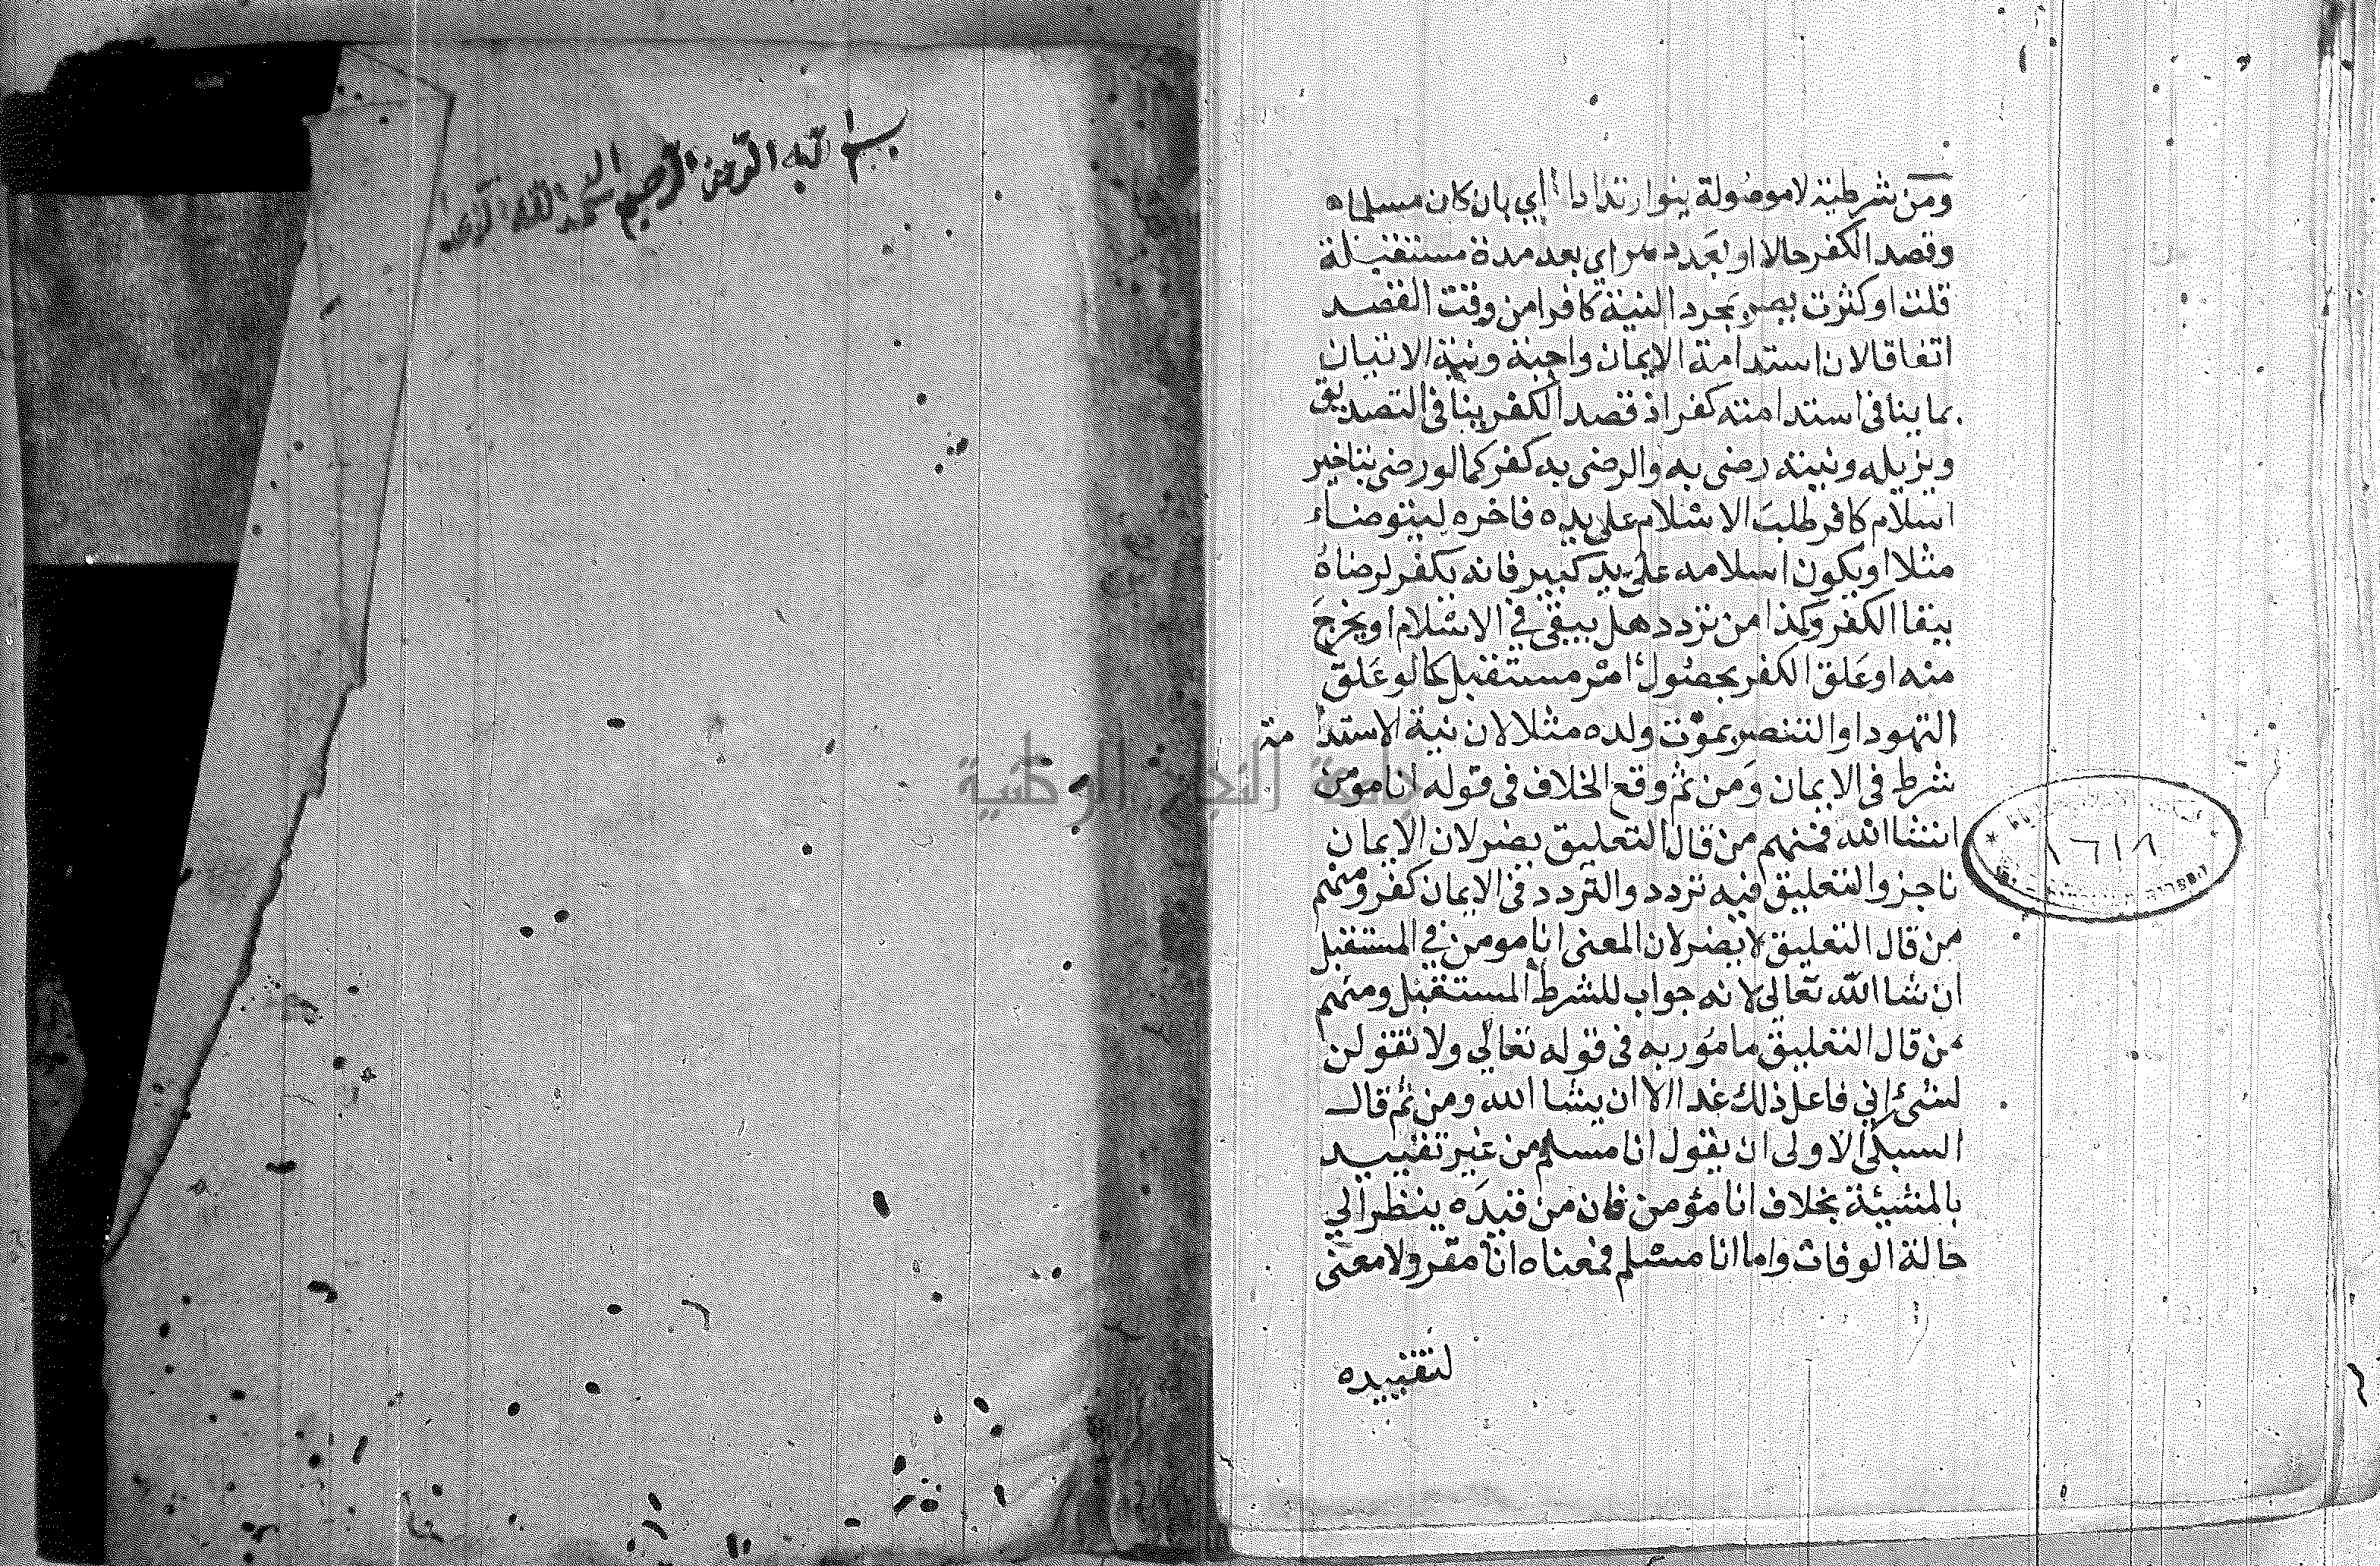 ومن شرطية لا موصولة ينوا رتدادا اي بان كان مسلما
وقصد الكفر حالا او بعد دهر اي بعد مدة مستقبلة
قلت او كثرت يصر بمجرد النية كافرا من وقت القصد
اتفاقا لان استدامة الايمان واجبة ونية الاتيان
بما ينافى استدامته كفر اذ قصد الكفر ينافى التصديق
ويزيله ونيته رضى به والرضى به كفر كما لو رضى بتاخير
اسلام كافر طلب الاسلام على يده فاخره ليتوضاء
مثلا او يكون اسلامه على يد كبير فانه يكفر لرضاه
ببقا الكفر وكذا من تردد هل يبقى في الاسلام او يخرج
منه او علق الكفر بحصول امر مستقبل كما لو علق
التهود او التنصر بموت ولده مثلا لان نية الاستدامة
شرط فى الايمان ومن ثم وقع الخلاف فى قوله انا مؤمن
انشا الله فمنهم من قال التعليق يضر لان الايمان
ناجز والتعليق فيه تردد والتردد فى الايمان كفر ومنهم
من قال التعليق لا يضر لان المعنى انا مومن في المستقبل
ان شا الله تعالى لانه جواب للشرط المستقبل ومنهم
من قال التعليق مامور به فى قوله تعالي ولا تقولن
لشئ اني فاعل ذلك غدا الا ان يشا الله ومن ثم قال
السبكي الاولى ان يقول انا مسلم من غير تقييد
بالمشيئة بخلاف انا مؤمن فان من قيده ينظر الي
حالة الوفات واما انا مسلم فمعناه انا مقر ولا معنى
لتقييده
١٦١٨
بسم الله الرحمن الرحيم الحمد لله الذى
جامعة النجاح الوطنية